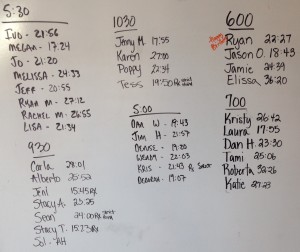 5:30
Ivo - 21:56
Megan - 17:24
Jo - 21:20
Melissa - 24:33
Jeff - 20:55
Ryan M - 27:12
Rachel M - 26:55
Lisa - 21:34
930
Carla 28:01
Alberto 25:52
Jeni 15:45 Rx
Stacy A. 23:25
Sean 24:00 Rx
Stacy T. 15:23 Rx
Sol - AH
1030
Jenny M. 17:55
Karen 27:00
Poppy 22:34
Tess 19:50 Rx
5:00
Dan W - 19:43
Jim H - 21:57
Denise - 19:20
22:03
Kris - 21:43 Rx
Deborah - 19:07
600
Ryan 22:27
Jason O. 18:43
Jamie 24:39
Elissa 36:20
700
Kristy 26:42
Laura 17:55
Dan H. 23:30
Tami 25:06
Roberta 32:26
Katie 27:23